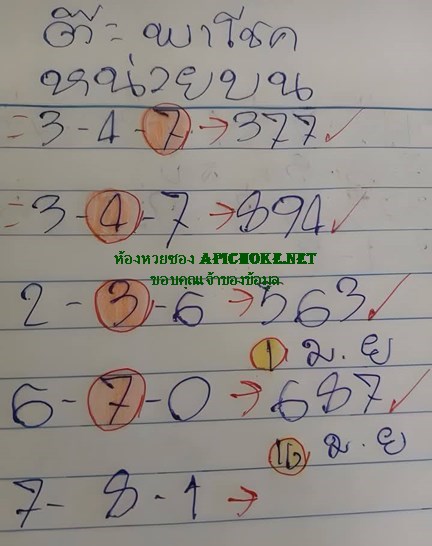 ตี๋ะ พาโชค
หน่วยบน
= 3 - 4 - 7 → 377 ✓
= 3 - 4 - 7 → 894 ✓
ห้องหวยซอง APICHOKE.NET
ขอบคุณเจ้าของข้อมูล
2 - 3 - 6 → 563 ✓
1 ม.ย
6 - 7 - 0 → 687 ✓
16 ม.ย
7 - 8 - 1 →